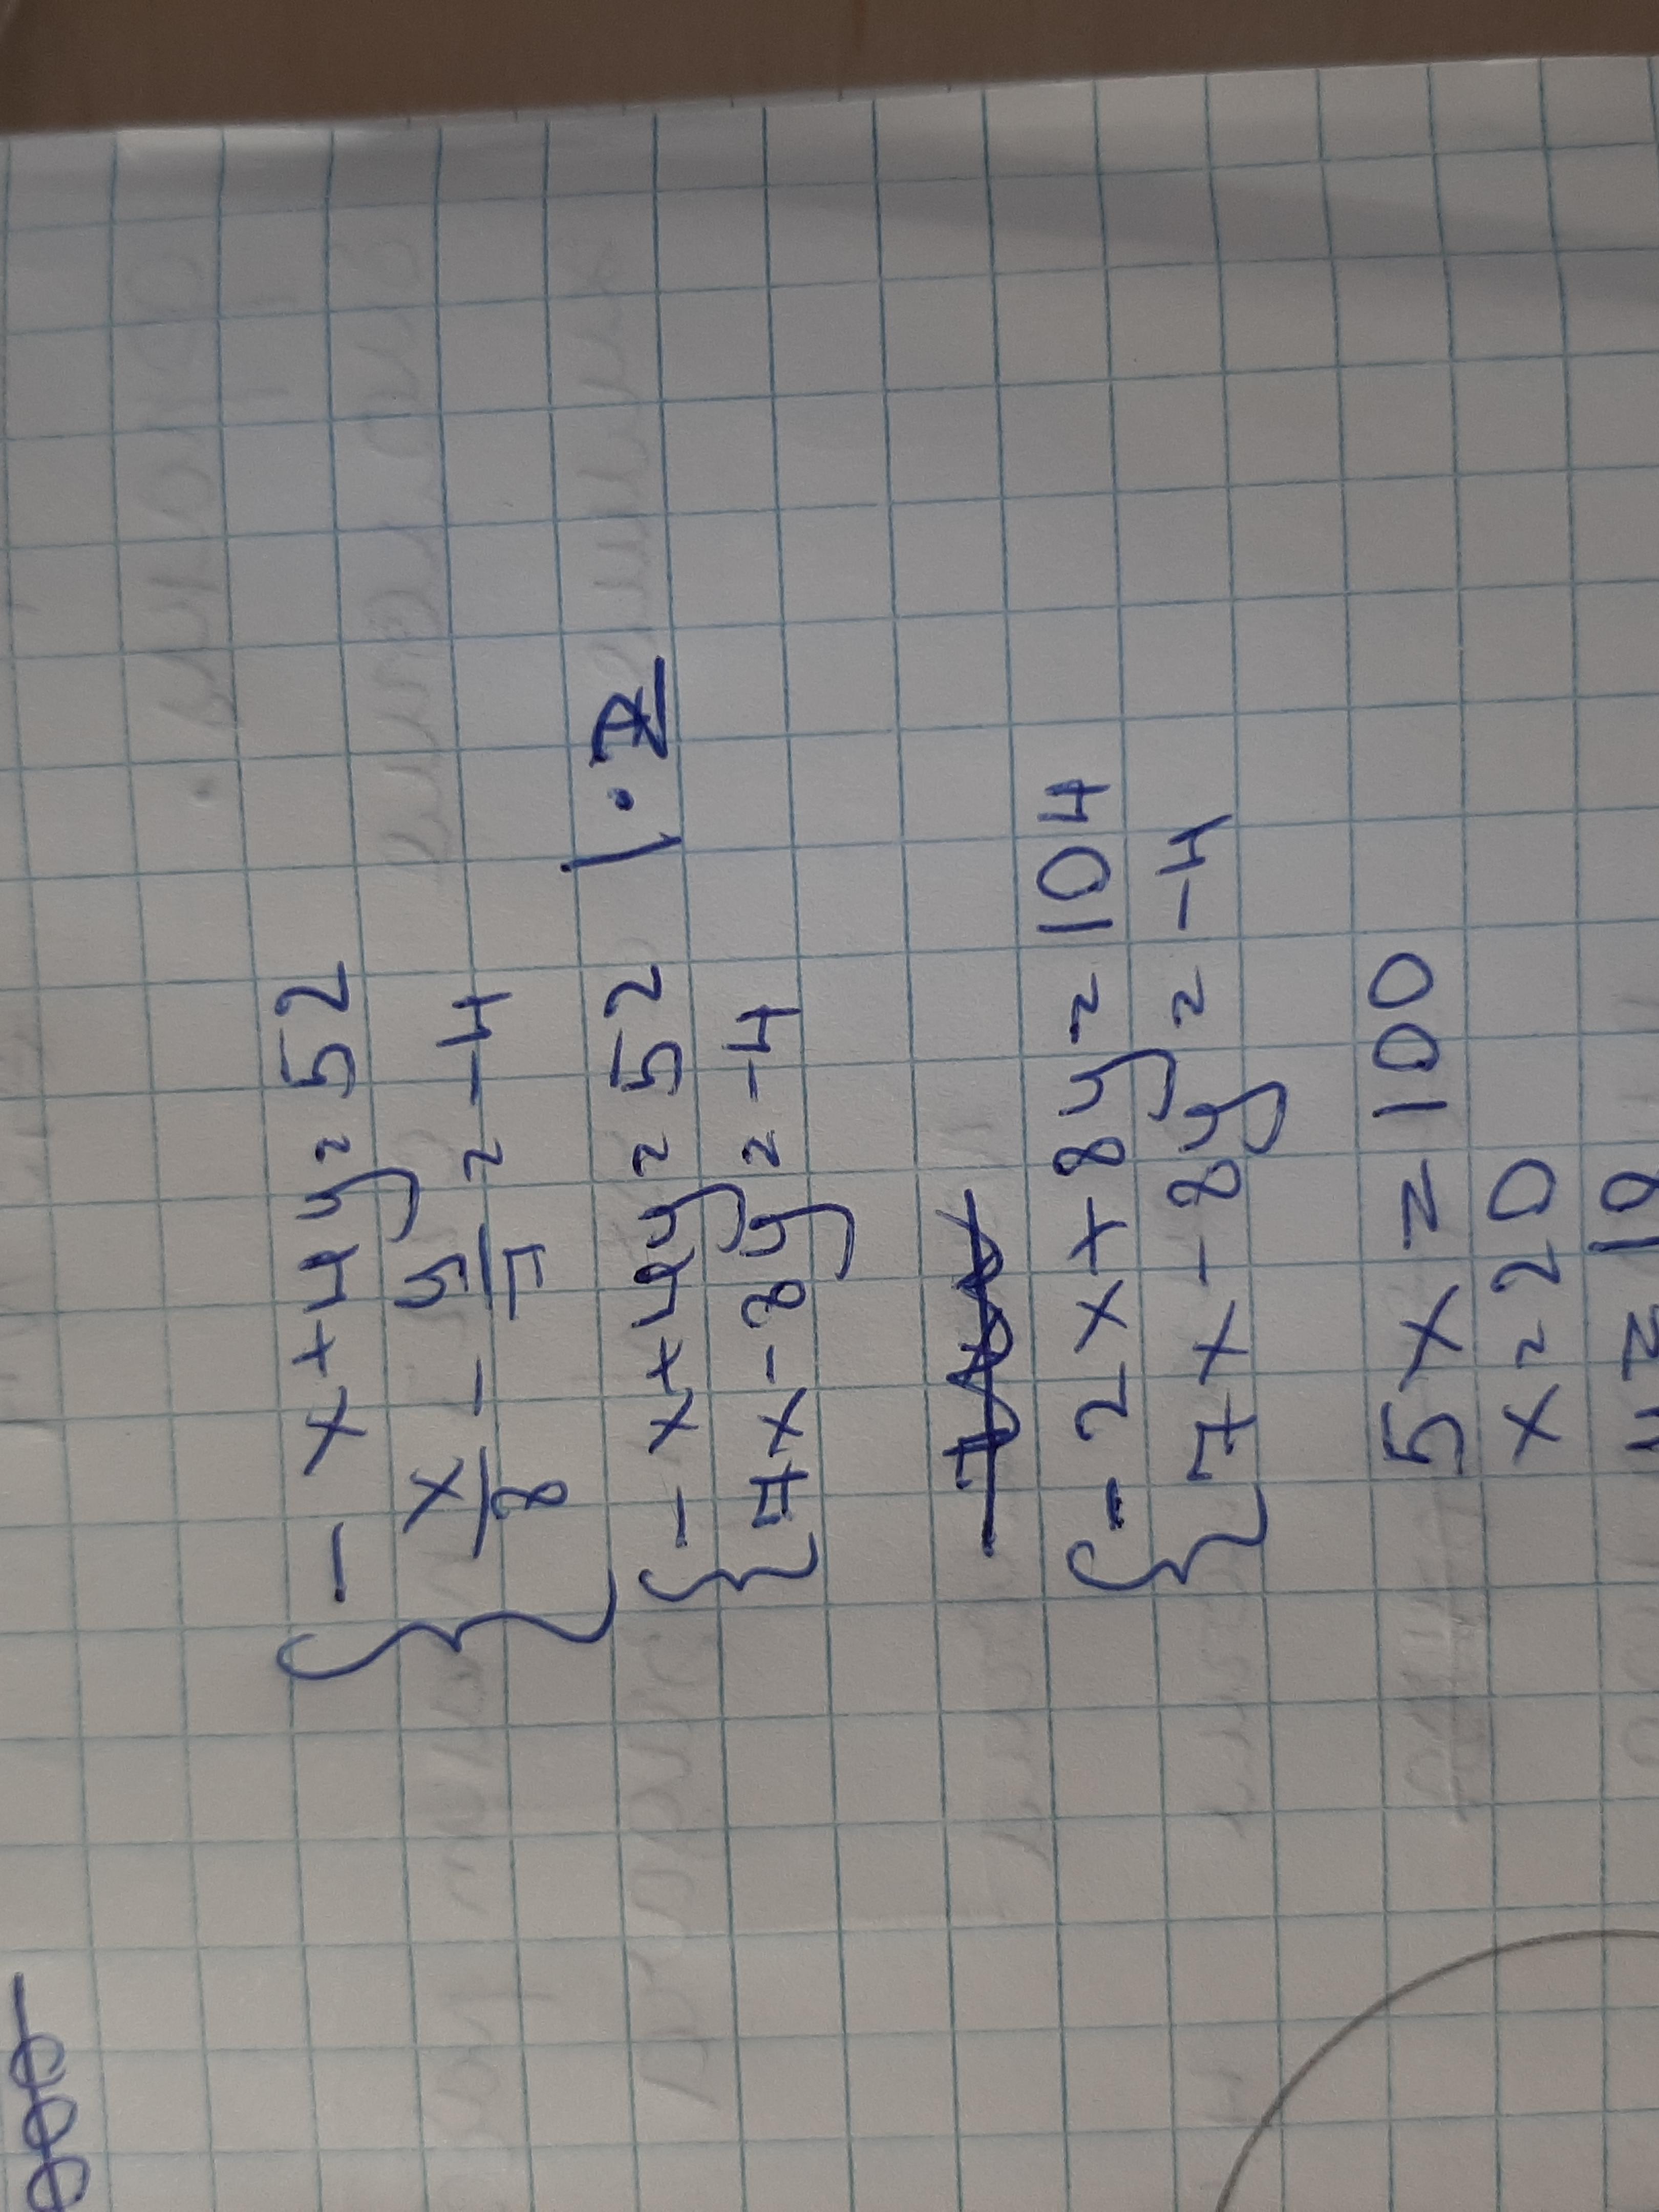 - x + 4y = 52
x/8 - y/7 = -4
- x + 4y = 52 | · 2
7x - 8y = -4
- 2x + 8y = 104
7x - 8y = -4
5x = 100
x = 20